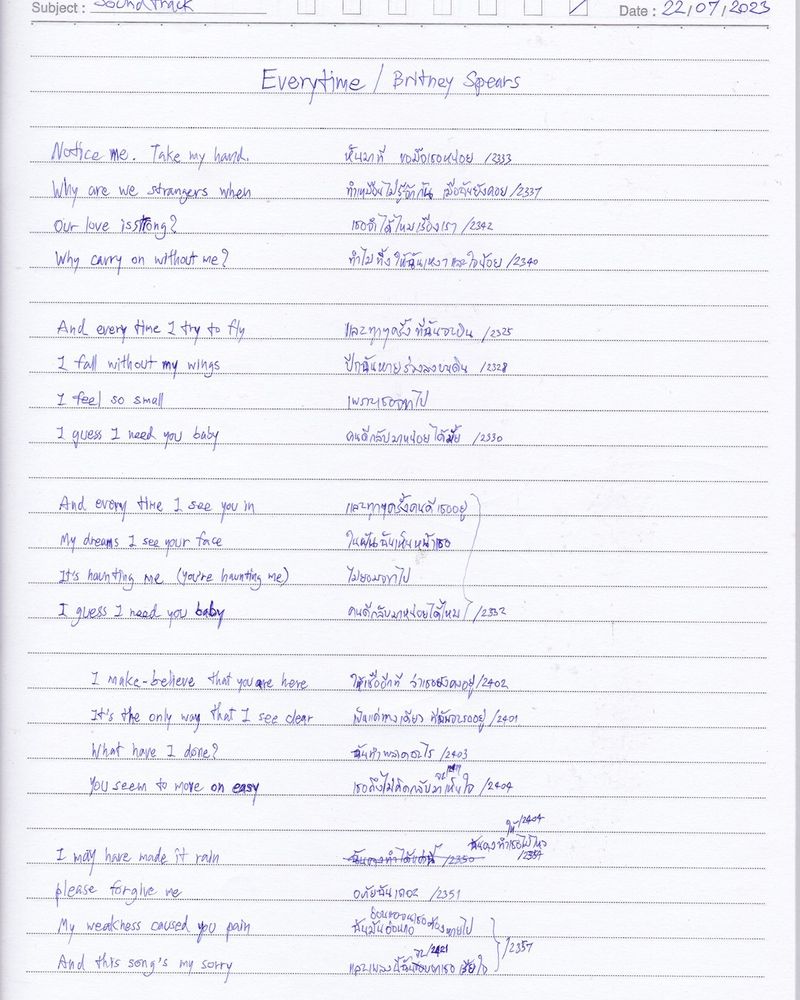 Subject : Soundtrack Date : 22/07/2023
Everytime / Britney Spears
Notice me. Take my hand. หันมาที ขอมือเธอหน่อย /2333
Why are we strangers when ทำเหมือนไม่รู้จักกัน เมื่อฉันยังคอย /2337
Our love is strong? เธอจำได้ไหมเรื่องเรา /2342
Why carry on without me? ทำไมทิ้งให้ฉันเหงาและใจน้อย /2340
And every time I try to fly และทุกๆครั้งที่ฉันจะบิน /2325
I fall without my wings ปีกฉันหายร่วงลงบนดิน /2328
I feel so small เพราะเธอจากไป
I guess I need you baby คนดีกลับมาหน่อยได้มั้ย /2330
And every time I see you in และทุกๆครั้งคนดีเธออยู่
My dreams I see your face ในฝันฉันเห็นหน้าเธอ
It's haunting me (you're haunting me) ไม่ยอมจากไป
I guess I need you baby คนดีกลับมาหน่อยได้ไหม /2332
I make-believe that you are here ให้เชื่ออีกที ว่าเธอยังคงอยู่ /2402
It's the only way that I see clear เป็นแค่ทางเดียว ที่ฉันจะรออยู่ /2401
What have I done? ฉันทำพลาดอะไร /2403
You seem to move on easy เธอถึงไม่คิดกลับมาเห็นใจ /2404
ให้ /2404
I may have made it rain ฉันคงทำได้แค่นี้ /2350 ฉันคงทำเธอไม่ไหว /2354
please forgive me อภัยฉันเถอะ /2351
My weakness caused you pain ฉันมันอ่อนแอ
And this song's my sorry และเพลงนี้ฉันขอบอกเธอ เสียใจ /2421 /2357